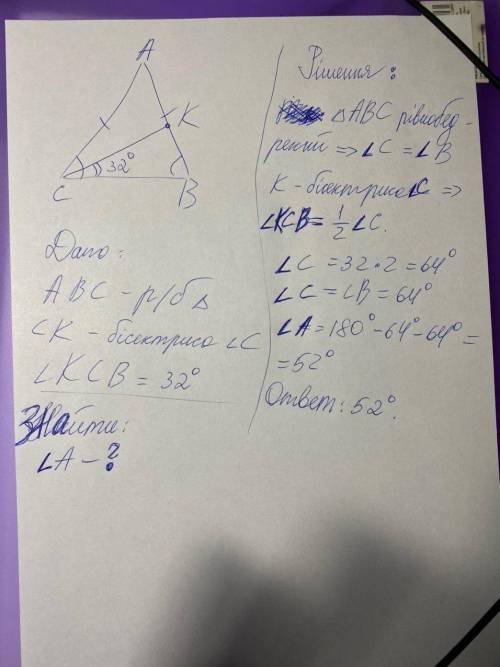 A
K
32°
C
B
Дано:
ABC - р/б △
CK - бісектриса ∠C
∠KCB = 32°
Знайти:
∠A - ?
Рішення:
△ABC рівнобед-
рений => ∠C = ∠B
K - бісектриса ∠C =>
∠KCB = 1/2 ∠C.
∠C = 32·2 = 64°
∠C = ∠B = 64°
∠A = 180° - 64° - 64° =
= 52°
Ответ: 52°.